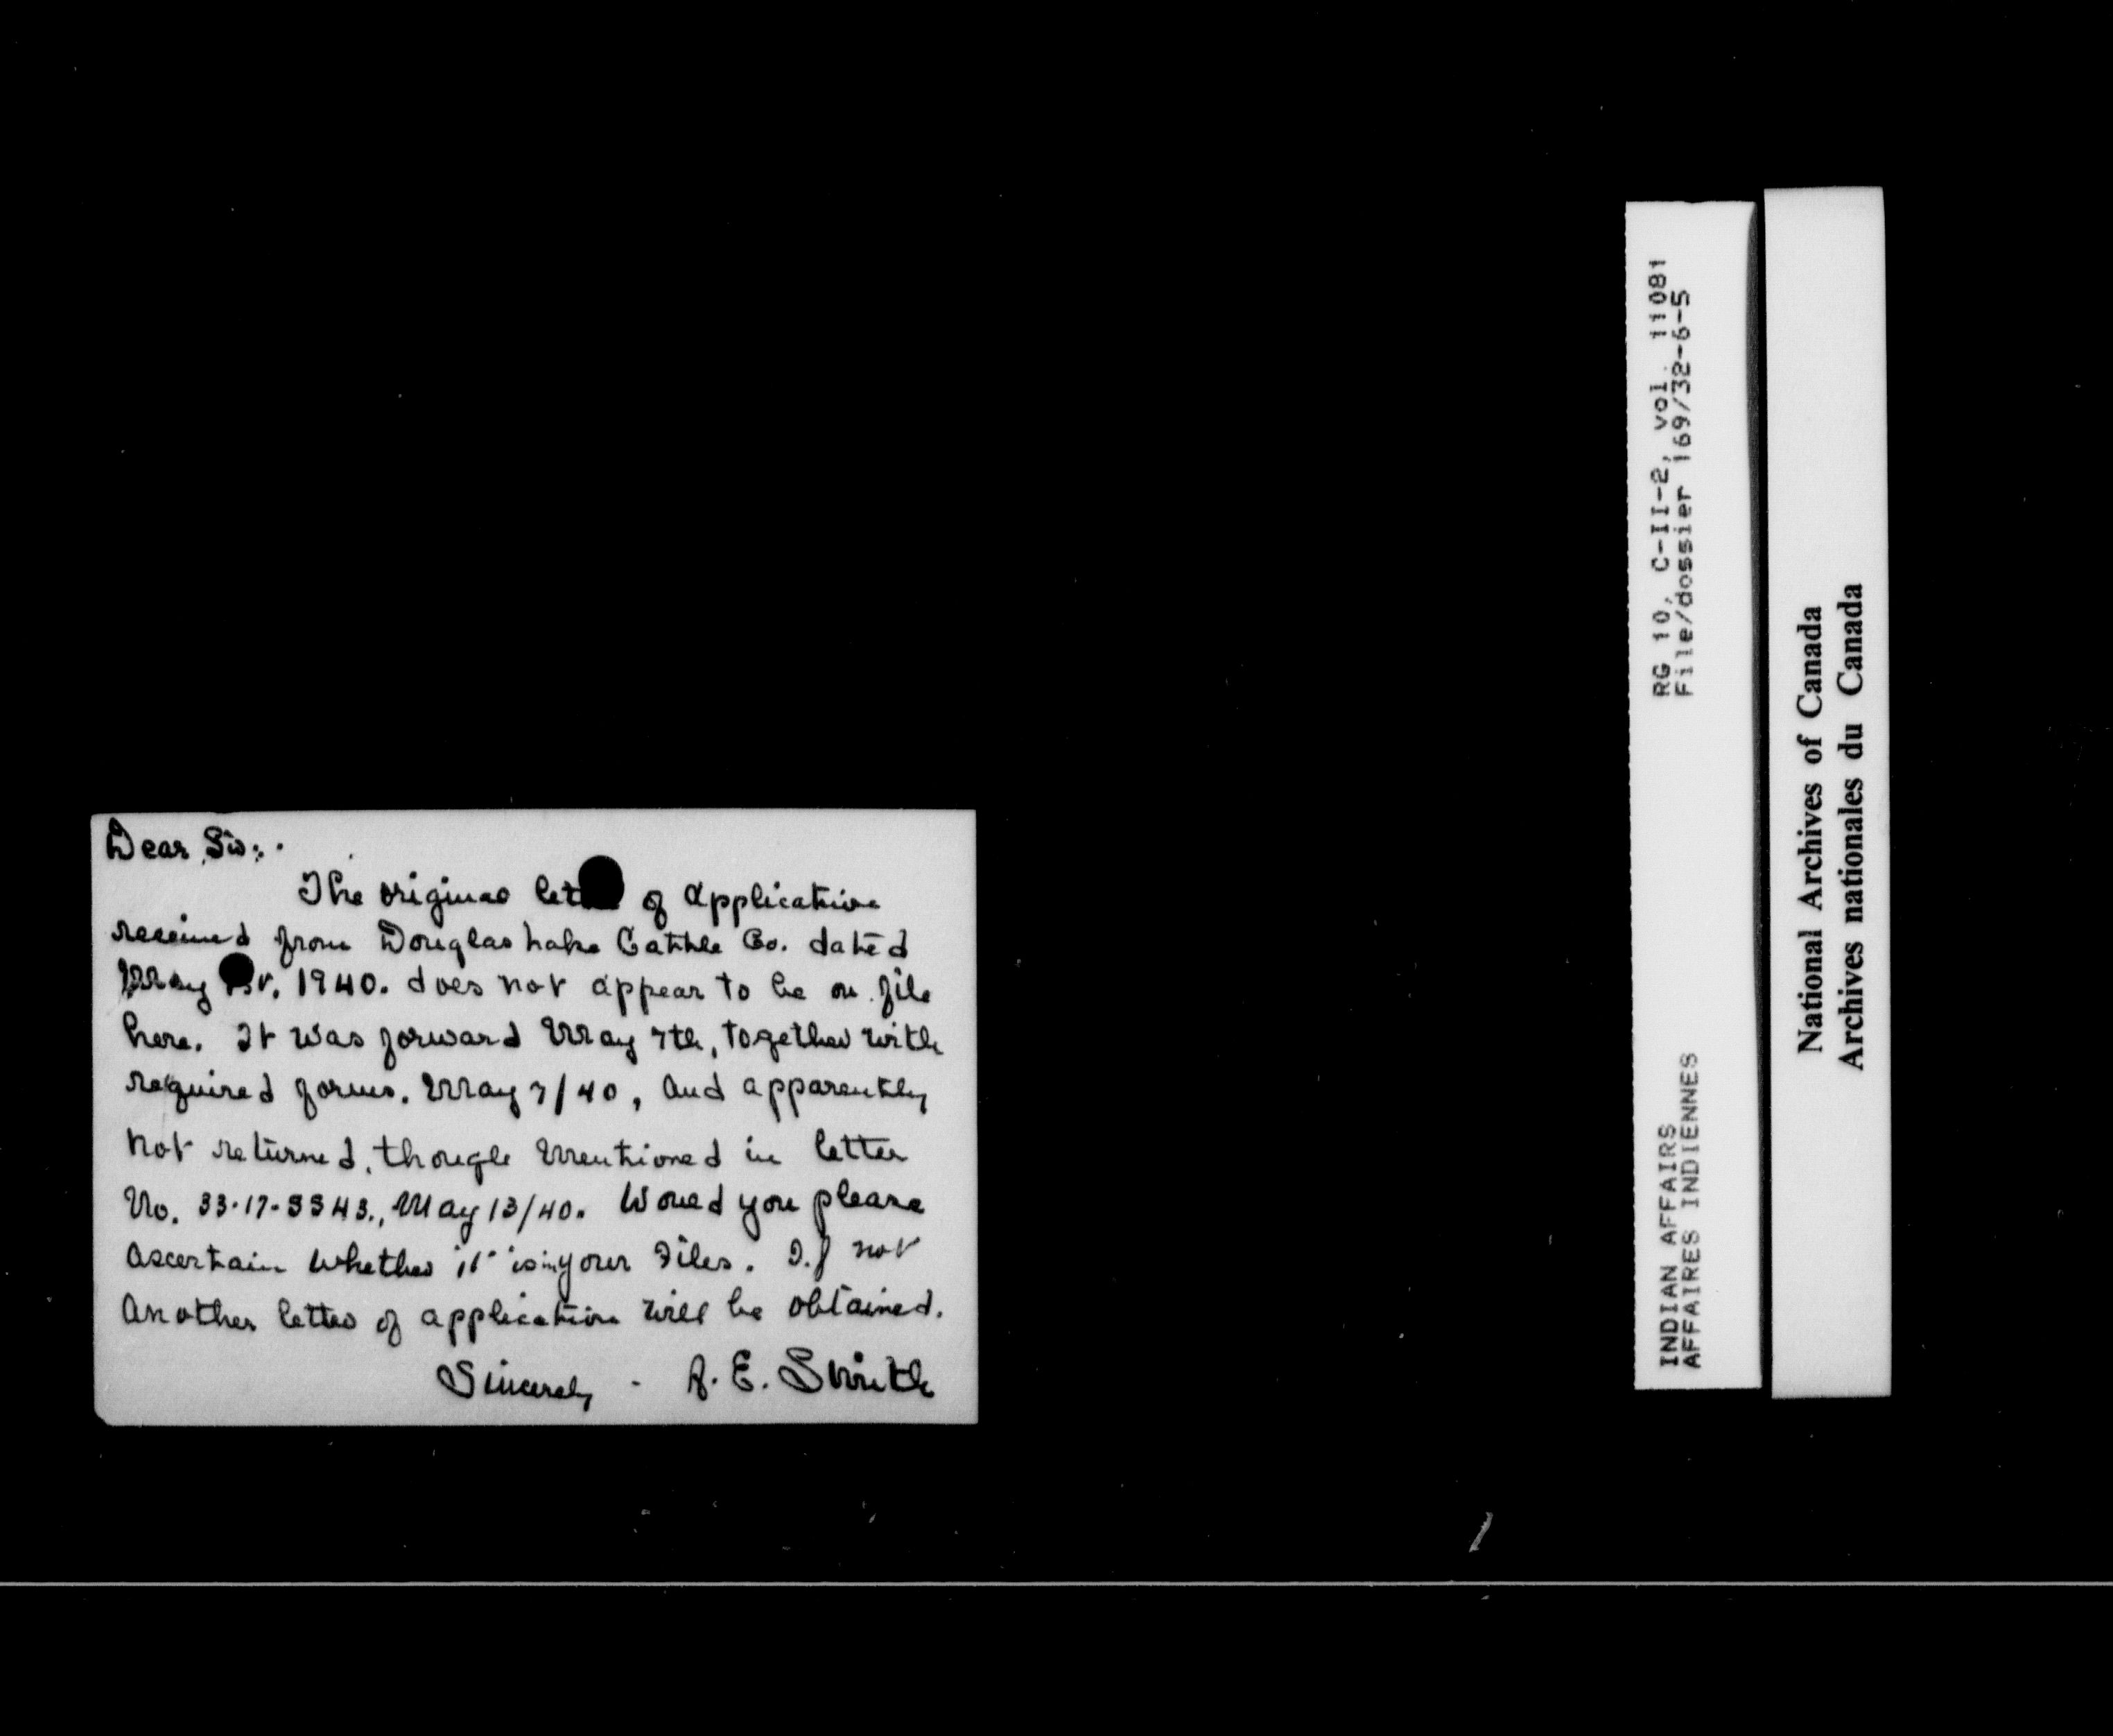 Dear Sir:.
The original letter of application
received from Douglas Lake Cattle Co. dated
May 1st, 1940. does not appear to be on file
here. It was forward May 7th, together with
required forms. May 7/40, and apparently
not returned, though mentioned in letter
No. 33-17-5543., May 13/40. Would you please
ascertain whether it is in your files. If not
another letter of application will be obtained.
Sincerely - A. E. Smith
RG 10, C-II-2, vol. 11081
File/dossier 169/32-6-5
INDIAN AFFAIRS
AFFAIRES INDIENNES
National Archives of Canada
Archives nationales du Canada